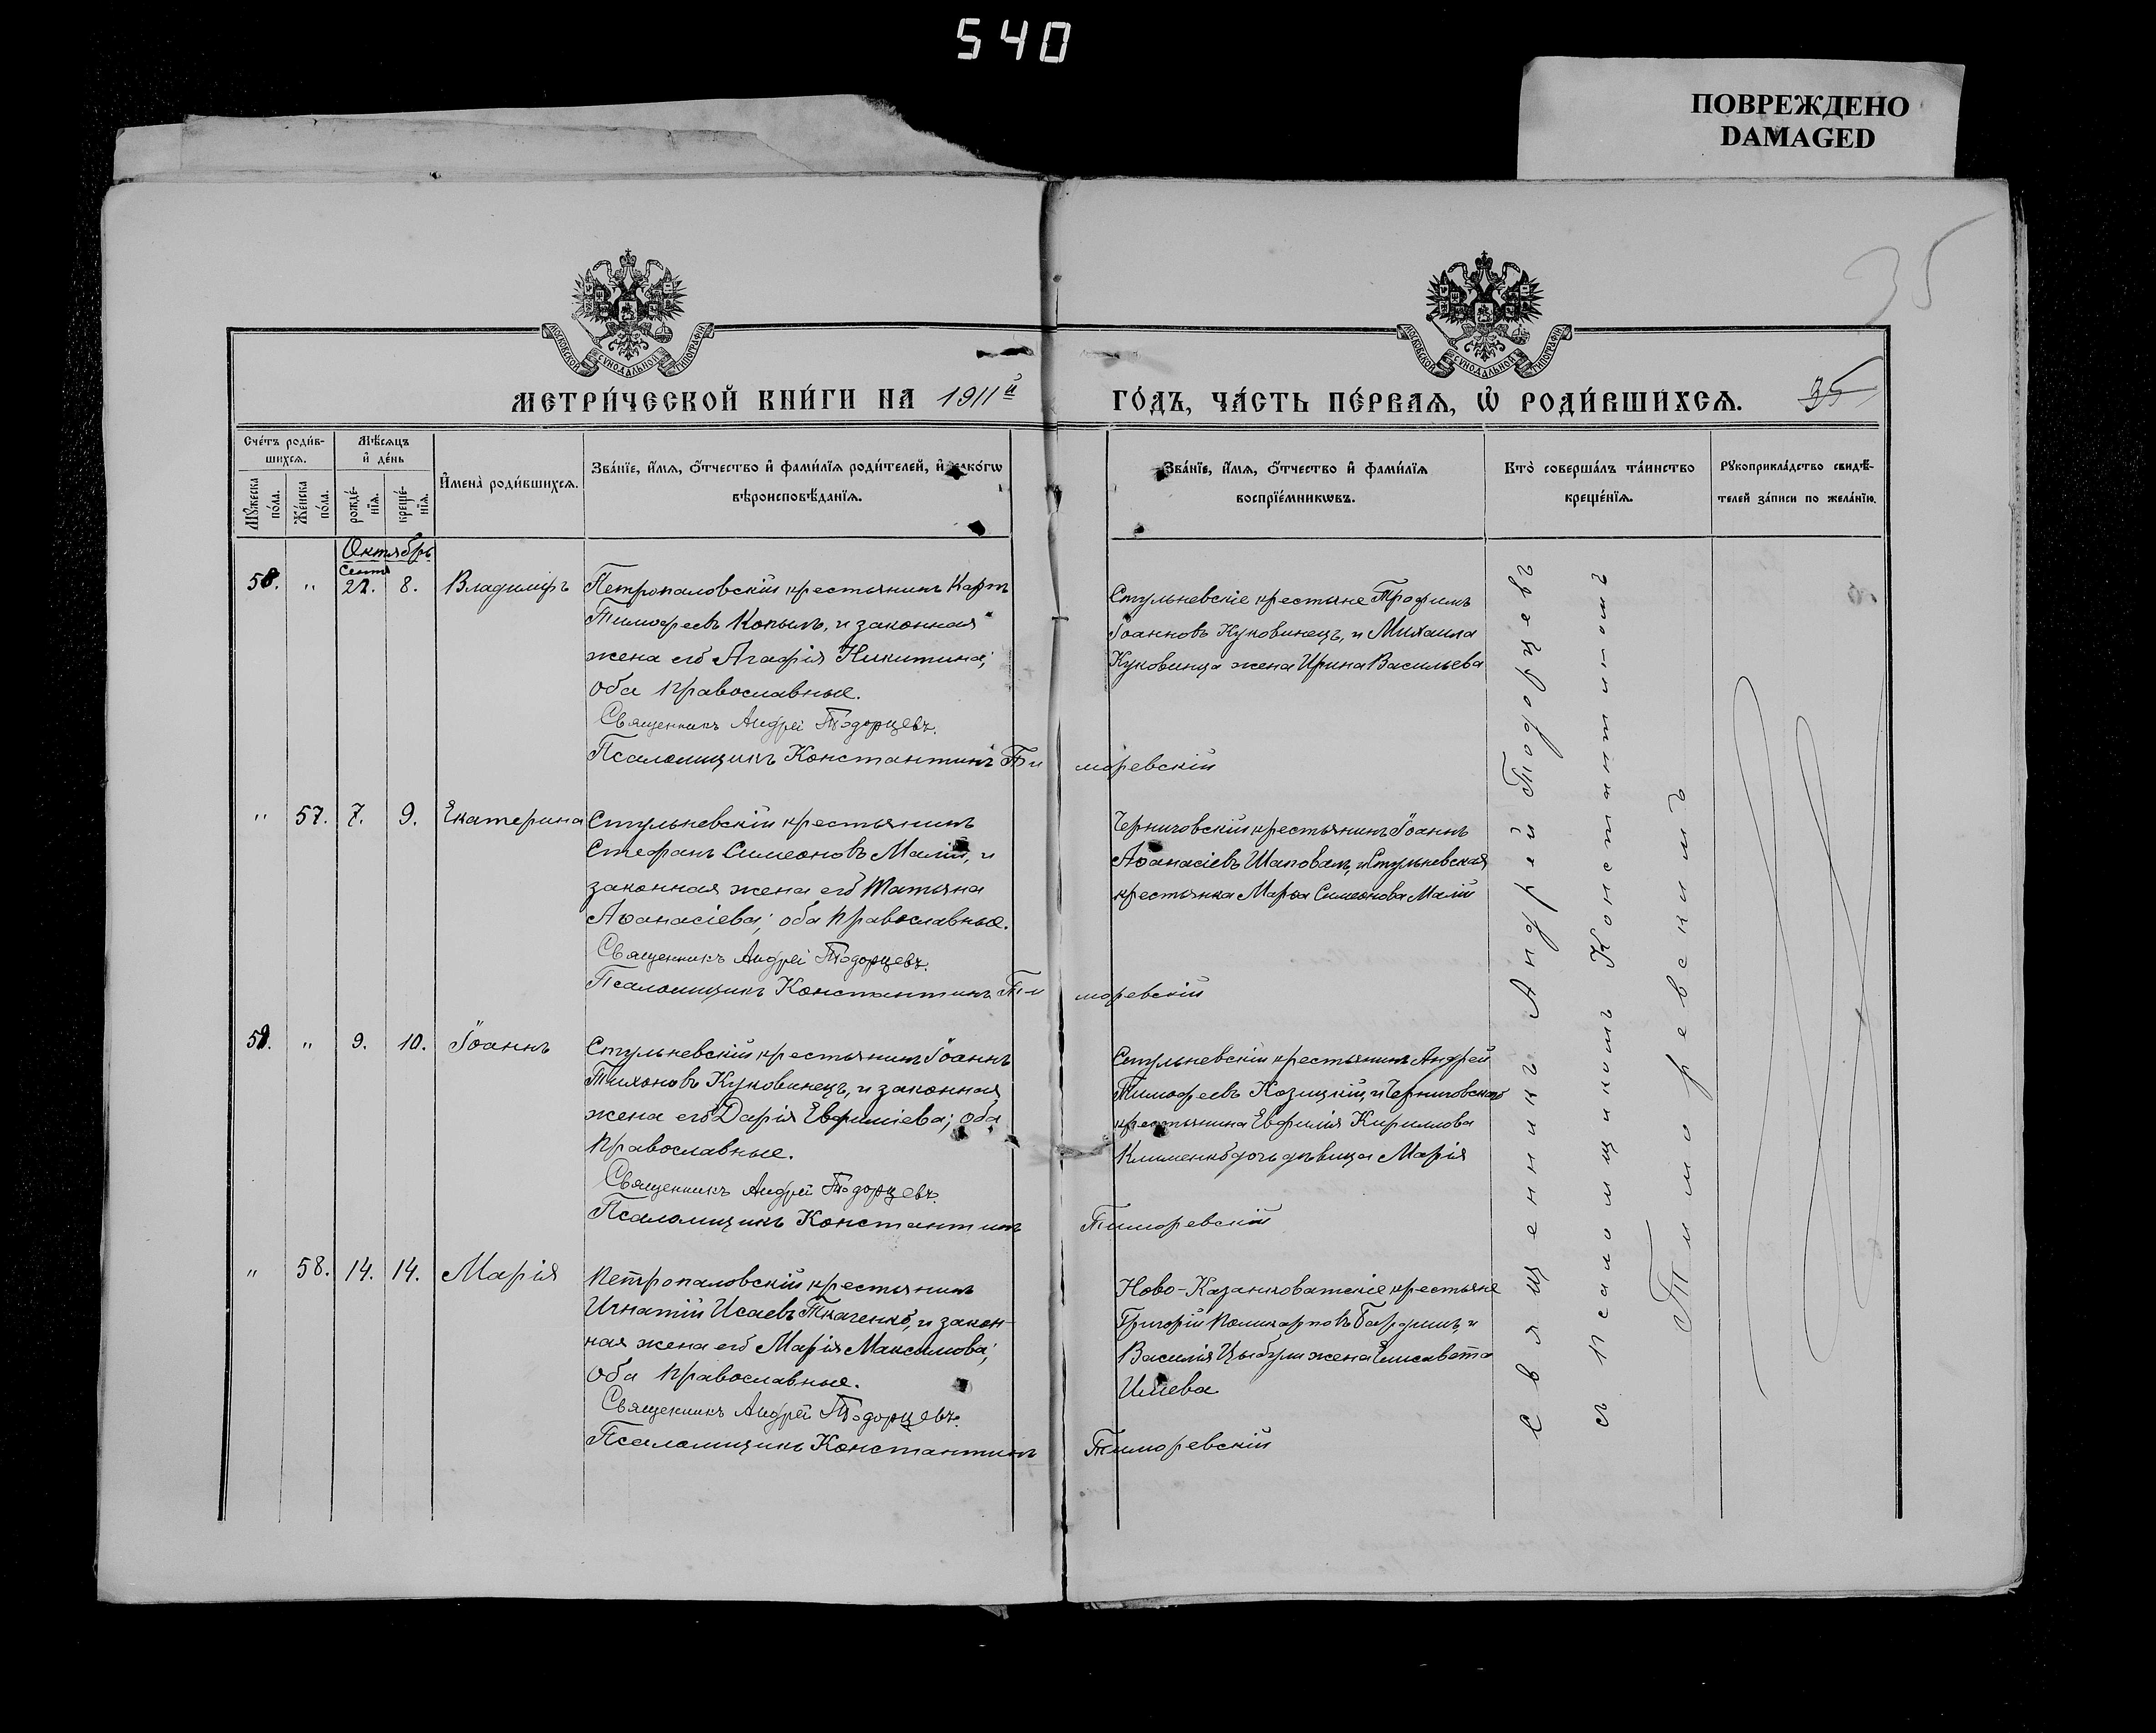 540
ПОВРЕЖДЕНО
DAMAGED
35
МОСКОВСКОЙ СѴНОДАЛЬНОЙ ТИПОГРАФІИ
МОСКОВСКОЙ СѴНОДАЛЬНОЙ ТИПОГРАФІИ
МЕТРИ́ЧЕСКОЙ КНИ́ГИ НА 1911й ГО́ДЪ, ЧА́СТЬ ПЕ́РВАѦ, Ѡ҆ РОДИ́ВШИХСѦ. 35
Сче́тъ роди́в-
шихсѧ.
Мѣ́сѧцъ
и҆ де́нь
Мꙋ́жеска
по́ла.
Же́нска
по́ла.
рожде́-
нїѧ.
креще́-
нїѧ.
И҆мена̀ роди́вшихсѧ.
Зва́нїе, и҆́мѧ, ѻ҆́тчество и҆ фами́лїѧ роди́телей, и҆ како́гѡ
вѣроисповѣ́данїѧ.
Зва́нїе, и҆́мѧ, ѻ҆́тчество и҆ фами́лїѧ
воспрїе́мникѡвъ.
Кто̀ соверша́лъ та́инство
креще́нїѧ.
Рꙋкоприкла́дство свидѣ́-
телей за́писи по жела́нїю.
Октябрь
Сент.
58. " 22. 8. Владиміръ
Петропаловскій крестьянинъ Карпъ
Тимофеевъ Копылъ, и законная
жена его Агафія Никитина;
оба православные.
Священникъ Андрей Тодорцевъ.
Псаломщикъ Константинъ Тиморевскій
Стульневскіе крестьяне Трофимъ
Іоанновъ Куковинецъ, и Михаила
Куковинца жена Ирина Васильева
" 57. 7. 9. Екатерина
Стульневскій крестьянинъ
Стефанъ Симеоновъ Малій, и
законная жена его Татьяна
Аѳанасіева; оба православные.
Священникъ Андрей Тодорцевъ.
Псаломщикъ Константинъ Тиморевскій
Черниговскій крестьянинъ Іоаннъ
Аѳанасіевъ Шаповалъ, и Стульневская
крестьянка Марѳа Симеонова Малій
59. " 9. 10. Іоаннъ
Стульневскій крестьянинъ Іоаннъ
Тихоновъ Куковинецъ, и законная
жена его Дарія Евфиміева; оба
православные.
Священникъ Андрей Тодорцевъ.
Псаломщикъ Константинъ Тиморевскій
Стульневскій крестьянинъ Андрей
Тимофеевъ Козицкій, и Черниговскаго
крестьянина Евфимія Кириллова
Клименко дочь дѣвица Марія
" 58. 14. 14. Марія
Петропаловскій крестьянинъ
Игнатій Исаевъ Ткаченко, и закон-
ная жена его Марія Максимова;
оба православные.
Священникъ Андрей Тодорцевъ.
Псаломщикъ Константинъ Тиморевскій
Ново-Казанковатскіе крестьяне
Григорій Поликарповъ и
Василія Цыбули жена Елисавета
Иліева
Священникъ Андрей Тодорцевъ
съ псаломщикомъ Константиномъ
Тиморевскимъ